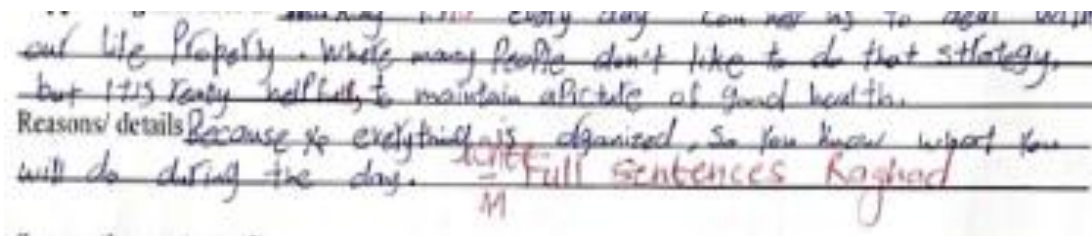 making list every day can help us to deal with
our life Property. Where many People don't like to do that strategy.
but it is realy hellfull, to maintain aPicture of good health.
Reasons/ details Because everything is organized, So You know what You
will do during the day. Full Sentences Raghad
M